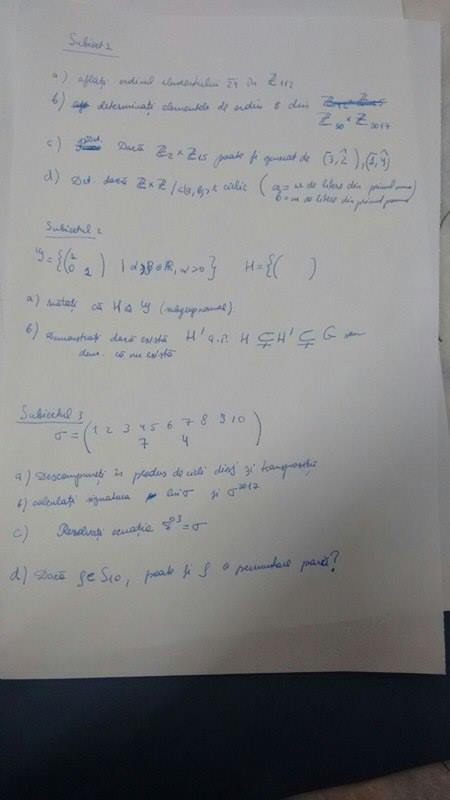 Subiect 1
a) aflați ordinul elementului 24 în Z112
b) determinați elementele de ordin 6 din
Z30 × Z2017
c) Dacă Z2 × Z15 poate fi generat de (3, 2), (1, 4)
d) Det. dacă Z×Z/<(a,b)> e ciclic (a = nr de litere din primul nume
b = nr de litere din primul prenume)
Subiectul 2
| α, β ∈ R, α>0} H={( )
a) arătați că H ⊴ G (subgrup normal)
b) demonstrați dacă există H' a.î. H ⊊ H' ⊊ G sau
dem. că nu există
Subiectul 3
σ = (1 2 3 4 5 6 7 8 9 10)
7 4
a) Descompuneți în produs de cicli disj și transpoziții
b) calculați signatura lui σ și σ2017
c) Rezolvați ecuația = σ
d) Dacă ρ ∈ S10, poate fi ρ o permutare pară?